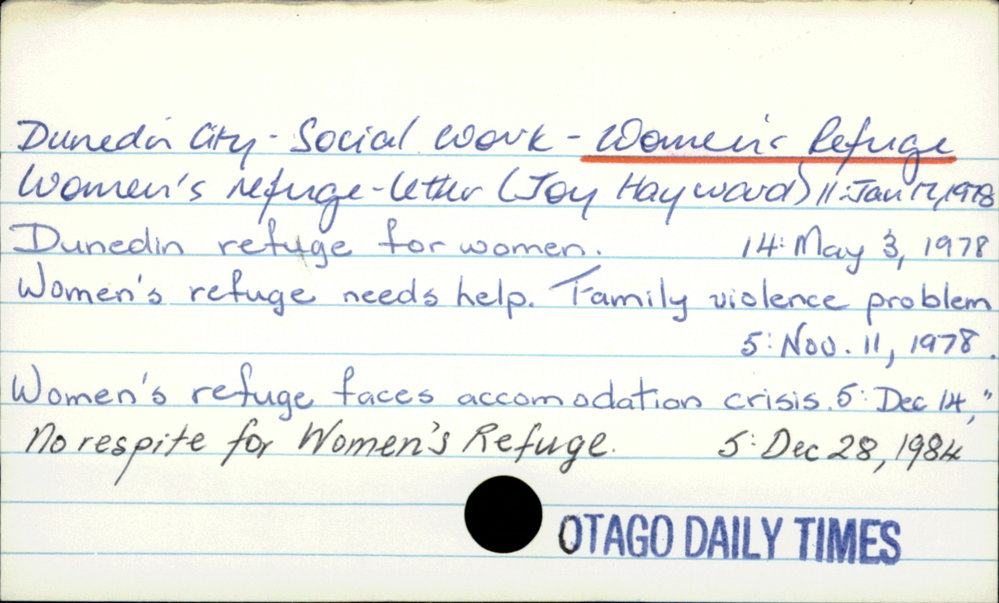 Dunedin City - Social Work - Women's Refuge
Women's refuge - letter (Joy Hayward) 11: Jan 17, 1978
Dunedin refuge for women. 14: May 3, 1978
Women's refuge needs help. Family violence problem
5: Nov. 11, 1978.
Women's refuge faces accomodation crisis. 5: Dec 14, "
No respite for Women's Refuge. 5: Dec 28, 1984
OTAGO DAILY TIMES